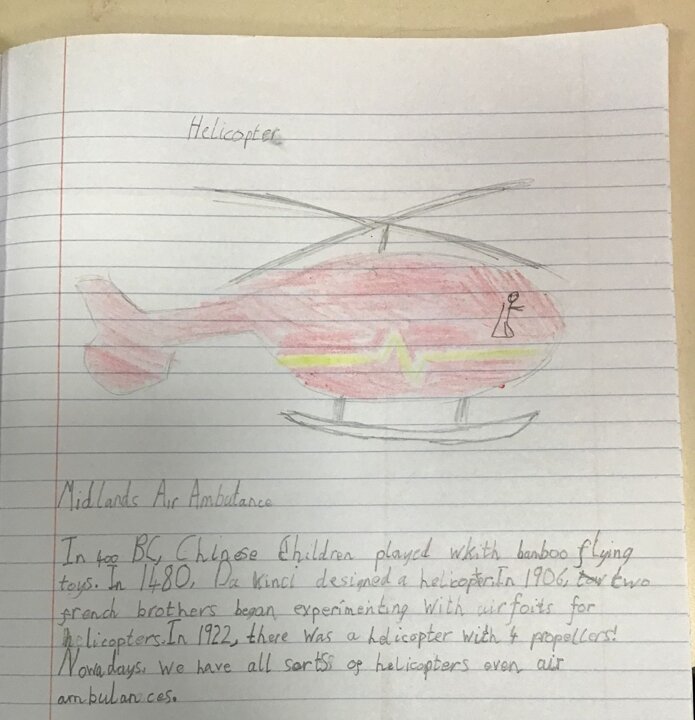 Helicopter
Midlands Air Ambulance
In 400 BC, Chinese Children played wkith bamboo flying
toys. In 1480, Da Vinci designed a helicopter. In 1906, two
french brothers began experimenting with airfoils for
helicopters. In 1922, there was a helicopter with 4 propellors!
Nowadays. we have all sortss of helicopters even air
ambulances.